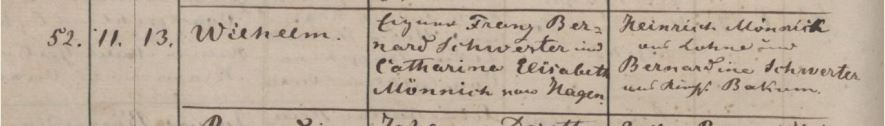 52. 11. 13. Wilhelm.
Eigner Franz Ber=
nard Schwerter und
Catharine Elisabeth
Mönnich aus Hagen.
Heinrich Mönnich
aus Lohne und
Bernardine Schwerter
aus Bakum.